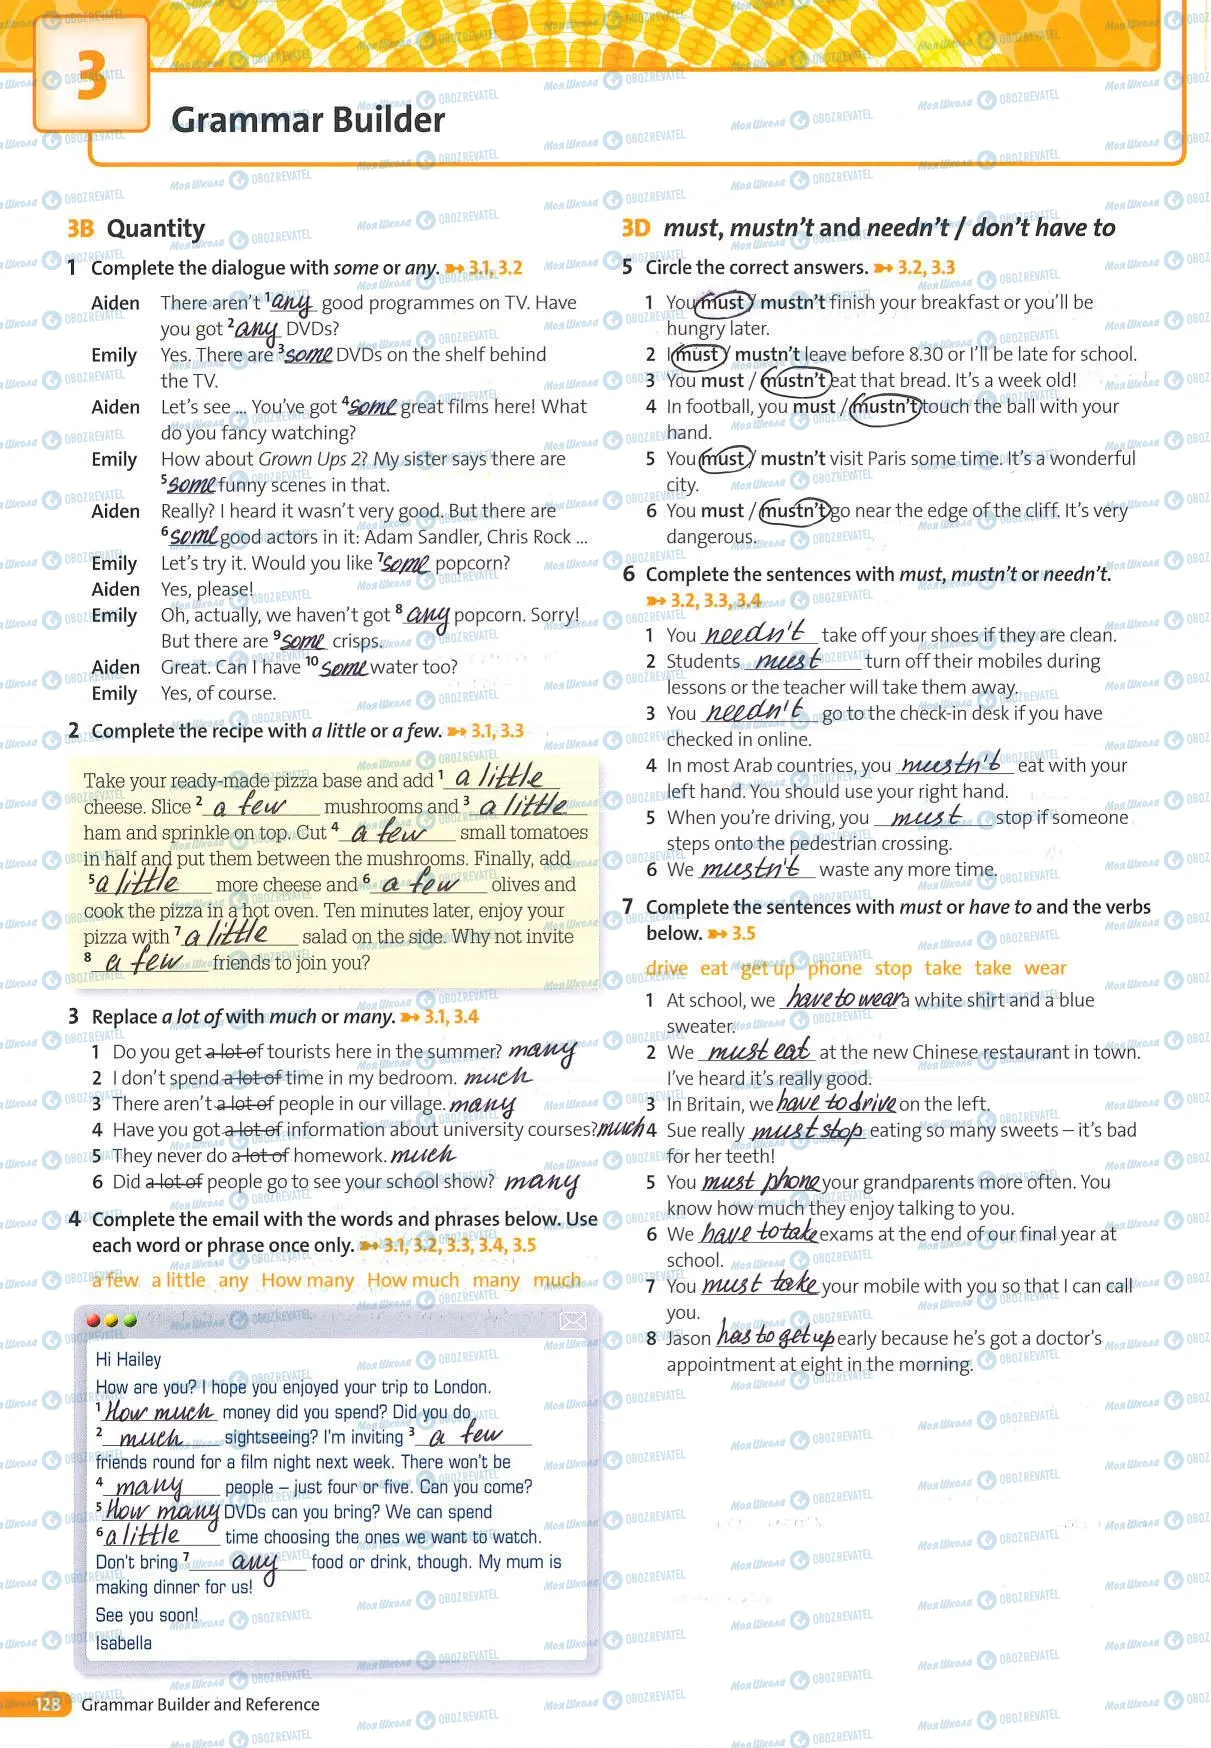 3
Grammar Builder
3B Quantity
1 Complete the dialogue with some or any. ➽ 3.1, 3.2
Aiden There aren't ¹ any good programmes on TV. Have
you got ² any DVDs?
Emily Yes. There are ³ some DVDs on the shelf behind
the TV.
Aiden Let's see ... You've got ⁴ some great films here! What
do you fancy watching?
Emily How about Grown Ups 2? My sister says there are
⁵ some funny scenes in that.
Aiden Really? I heard it wasn't very good. But there are
⁶ some good actors in it: Adam Sandler, Chris Rock ...
Emily Let's try it. Would you like ⁷ some popcorn?
Aiden Yes, please!
Emily Oh, actually, we haven't got ⁸ any popcorn. Sorry!
But there are ⁹ some crisps.
Aiden Great. Can I have ¹⁰ some water too?
Emily Yes, of course.
2 Complete the recipe with a little or a few. ➽ 3.1, 3.3
Take your ready-made pizza base and add ¹ a little
cheese. Slice ² a few mushrooms and ³ a little
ham and sprinkle on top. Cut ⁴ a few small tomatoes
in half and put them between the mushrooms. Finally, add
⁵ a little more cheese and ⁶ a few olives and
cook the pizza in a hot oven. Ten minutes later, enjoy your
pizza with ⁷ a little salad on the side. Why not invite
⁸ a few friends to join you?
3 Replace a lot of with much or many. ➽ 3.1, 3.4
1 Do you get a lot of tourists here in the summer? many
2 I don't spend a lot of time in my bedroom. much
3 There aren't a lot of people in our village. many
4 Have you got a lot of information about university courses? much
5 They never do a lot of homework. much
6 Did a lot of people go to see your school show? many
4 Complete the email with the words and phrases below. Use
each word or phrase once only. ➽ 3.1, 3.2, 3.3, 3.4, 3.5
a few a little any How many How much many much
Hi Hailey
How are you? I hope you enjoyed your trip to London.
¹ How much money did you spend? Did you do
² much sightseeing? I'm inviting ³ a few
friends round for a film night next week. There won't be
⁴ many people – just four or five. Can you come?
⁵ How many DVDs can you bring? We can spend
⁶ a little time choosing the ones we want to watch.
Don't bring ⁷ any food or drink, though. My mum is
making dinner for us!
See you soon!
Isabella
128 Grammar Builder and Reference
3D must, mustn't and needn't / don't have to
5 Circle the correct answers. ➽ 3.2, 3.3
1 You must / mustn't finish your breakfast or you'll be
hungry later.
2 I must / mustn't leave before 8.30 or I'll be late for school.
3 You must / mustn't eat that bread. It's a week old!
4 In football, you must / mustn't touch the ball with your
hand.
5 You must / mustn't visit Paris some time. It's a wonderful
city.
6 You must / mustn't go near the edge of the cliff. It's very
dangerous.
6 Complete the sentences with must, mustn't or needn't.
➽ 3.2, 3.3, 3.4
1 You needn't take off your shoes if they are clean.
2 Students must turn off their mobiles during
lessons or the teacher will take them away.
3 You needn't go to the check-in desk if you have
checked in online.
4 In most Arab countries, you mustn't eat with your
left hand. You should use your right hand.
5 When you're driving, you must stop if someone
steps onto the pedestrian crossing.
6 We mustn't waste any more time.
7 Complete the sentences with must or have to and the verbs
below. ➽ 3.5
drive eat get up phone stop take take wear
1 At school, we have to wear a white shirt and a blue
sweater.
2 We must eat at the new Chinese restaurant in town.
I've heard it's really good.
3 In Britain, we have to drive on the left.
4 Sue really must stop eating so many sweets – it's bad
for her teeth!
5 You must phone your grandparents more often. You
know how much they enjoy talking to you.
6 We have to take exams at the end of our final year at
school.
7 You must take your mobile with you so that I can call
you.
8 Jason has to get up early because he's got a doctor's
appointment at eight in the morning.
Моя Школа OBOZREVATEL